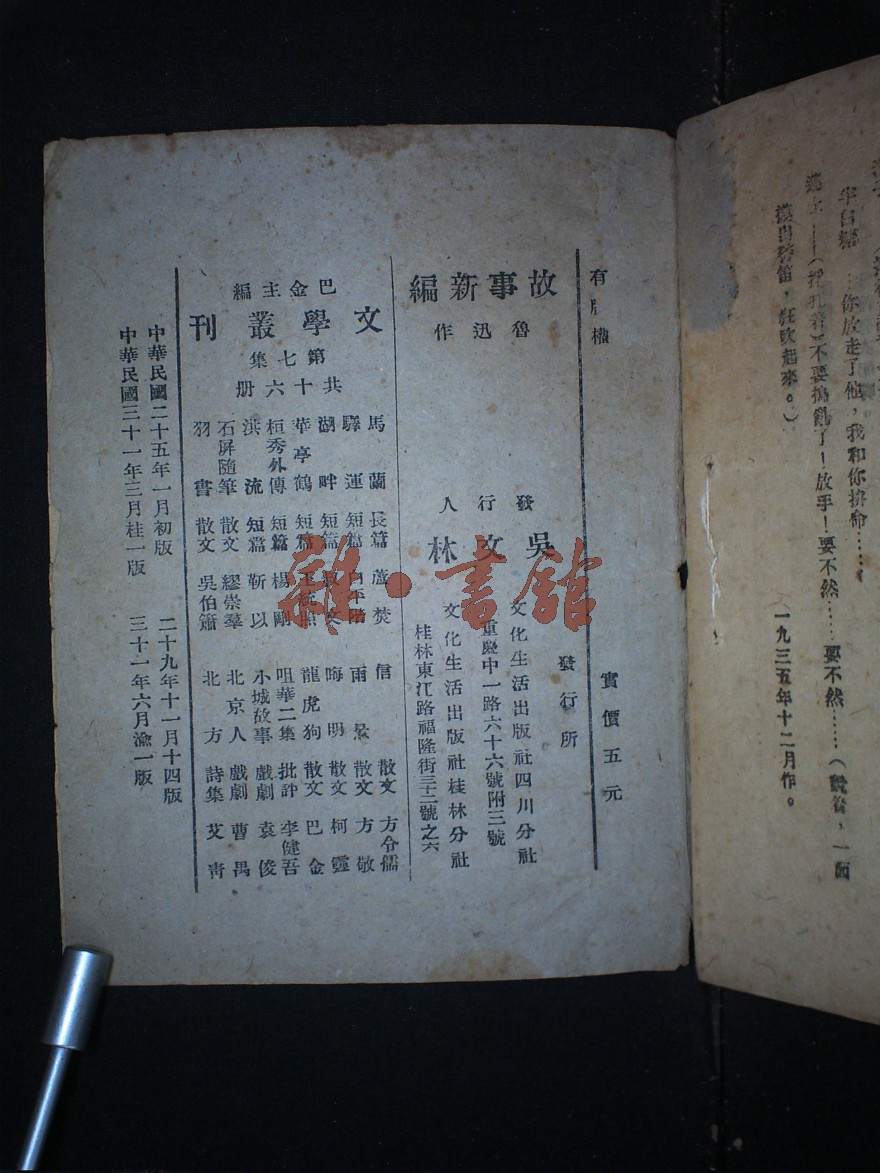 你放走了他，我和你拚命……
不要搗亂了！放手！要不然……要不然……（
狂吹起來。）
（一九三五年十二月作。
有版權
實價五元
故事新編
魯迅作
發行人
吳文林
發行所
文化生活出版社四川分社
重慶中一路六十六號附三號
文化生活出版社桂林分社
桂林東江路福隆街三十二號之六
巴金主編
文學叢刊
第七集
共十六册
馬蘭 長篇 蘆焚
驛運 短篇
湖畔 短篇
華亭鶴 短篇
桓秀外傳 短篇 楊剛
浜流 短篇 靳以
石屏隨筆 散文 繆崇羣
羽書 散文 吳伯簫
信 散文 方令孺
雨景 散文 方敬
晦明 散文 柯靈
龍虎狗 散文 巴金
咀華二集 批評 李健吾
小城故事 戲劇 袁俊
北京人 戲劇 曹禺
北方 詩集 艾青
中華民國二十五年一月初版
二十九年十一月十四版
中華民國三十一年三月桂一版
三十一年六月渝一版
雜·書館